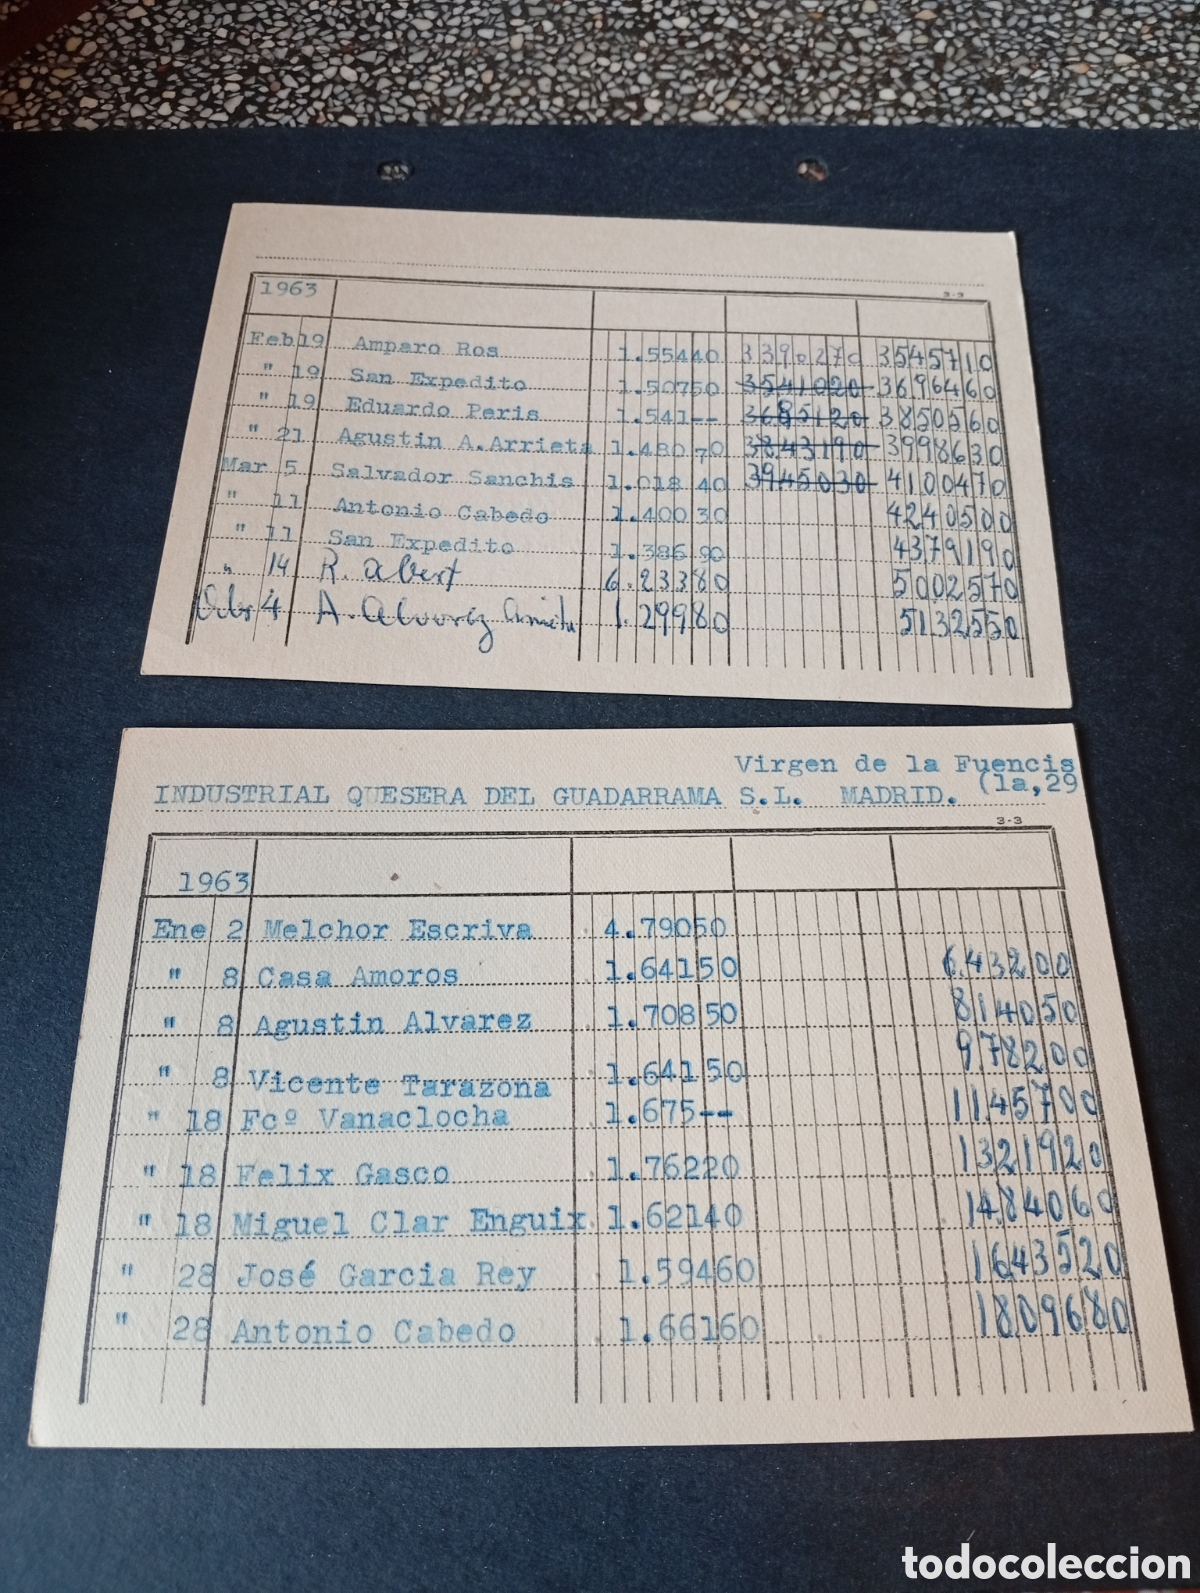 3-3
1963
Feb 19 Amparo Ros 1.55440 3390270 3545710
" 19 San Expedito 1.50750 3541020 3696460
" 19 Eduardo Peris 1.541-- 3685120 3850560
" 21 Agustin A.Arrieta 1.48070 3843190 3998630
Mar 5 Salvador Sanchis 1.01840 3945030 4100470
" 11 Antonio Cabedo 1.40030 4240500
" 11 San Expedito 1.38690 4379190
" 14 R. Albert 6.23380 5002570
4 A. Alvarez 1.29980 5132550
Virgen de la Fuencis
INDUSTRIAL QUESERA DEL GUADARRAMA S.L. MADRID. (la,29
3-3
1963
Ene 2 Melchor Escriva 4.79050
" 8 Casa Amoros 1.64150 6.43200
" 8 Agustin Alvarez 1.70850 814050
" 8 Vicente Tarazona 1.64150 978200
" 18 Fcº Vanaclocha 1.675-- 1145700
" 18 Felix Gasco 1.76220 1321920
" 18 Miguel Clar Enguix 1.62140 1484060
" 28 José Garcia Rey 1.59460 1643520
" 28 Antonio Cabedo 1.66160 1809680
todocoleccion